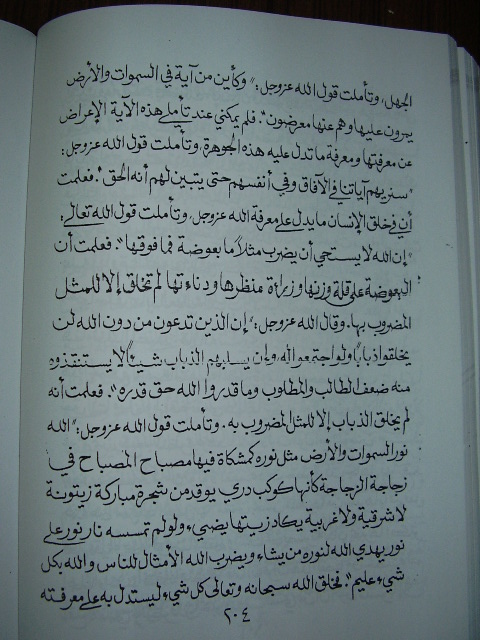 الجهل، وتأملت قول الله عزوجل: "وكأين من آية في السموات والأرض
يمرون عليها وهم عنها معرضون". فلم يمكني عند تأملي هذه الآية الإعراض
عن معرفتها ومعرفة ما تدل عليه هذه الجوهرة، وتأملت قول الله عزوجل:
"سنريهم آياتنا في الآفاق وفي أنفسهم حتى يتبين لهم أنه الحق". فعلمت
أن في خلق الإنسان ما يدل على معرفة الله عزوجل، وتأملت قول الله تعالى:
"إن الله لا يستحي أن يضرب مثلاً ما بعوضة فما فوقها". فعلمت أن
البعوضة على قلة وزنها وزراءة منظرها ودناءتها لم تخلق إلا للمثل
المضروب بها. وقال الله عزوجل: "إن الذين تدعون من دون الله لن
يخلقوا ذباباً ولو اجتمعوا له، وإن يسلبهم الذباب شيئاً لا يستنقذوه
منه ضعف الطالب والمطلوب وما قدروا الله حق قدره". فعلمت أنه
لم يخلق الذباب إلا للمثل المضروب به. وتأملت قول الله عزوجل: "الله
نور السموات والأرض مثل نوره كمشكاة فيها مصباح المصباح في
زجاجة الزجاجة كأنها كوكب دري يوقد من شجرة مباركة زيتونة
لا شرقية ولا غربية يكاد زيتها يضيء ولو لم تمسسه نار نور على
نور يهدي الله لنوره من يشاء ويضرب الله الأمثال للناس والله بكل
شيء عليم". فخلق الله سبحانه وتعالى كل شيء ليستدل به على معرفته
٢٠٤